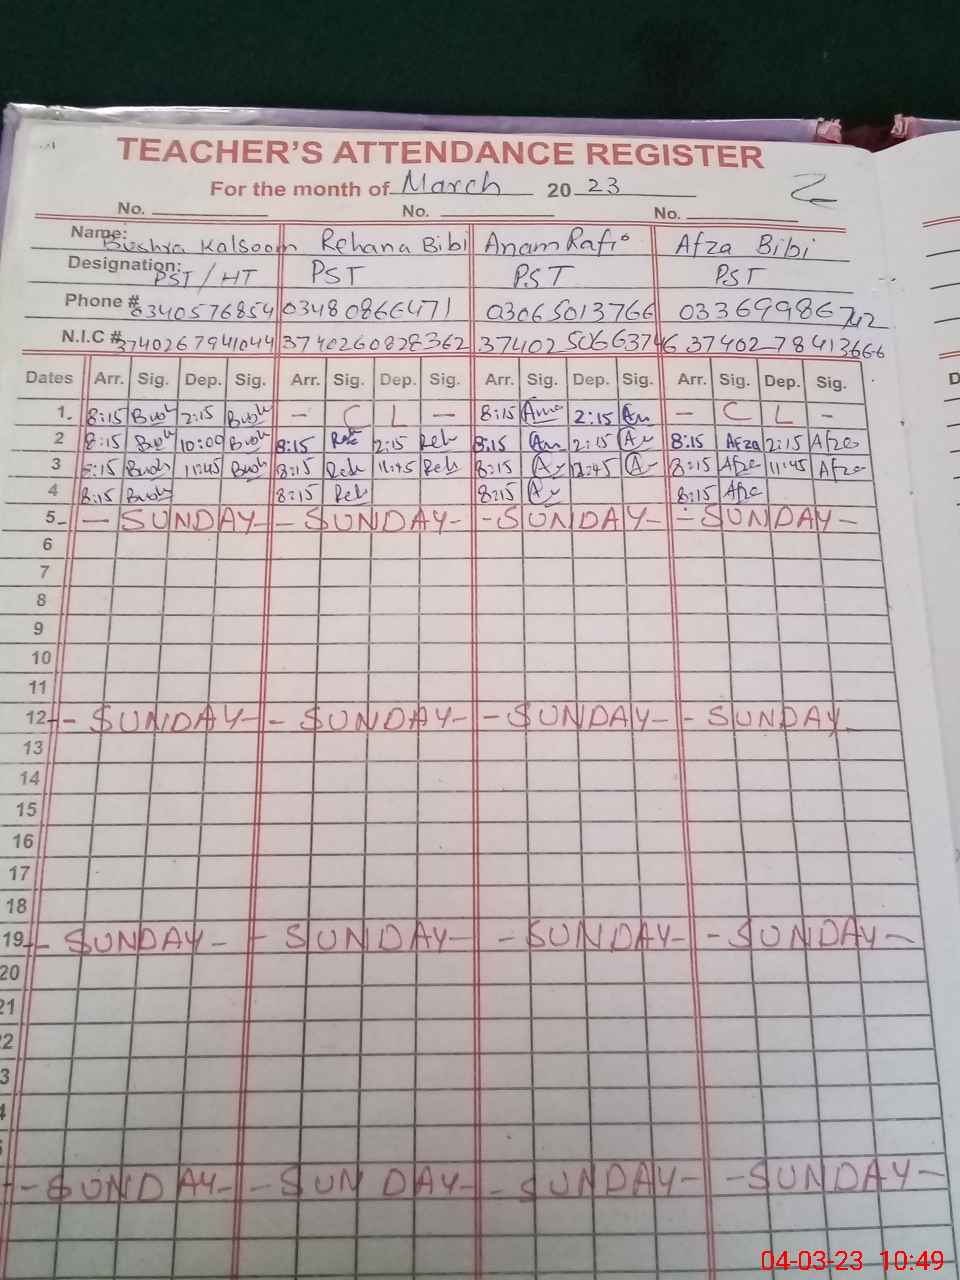 TEACHER'S ATTENDANCE REGISTER
For the month of March 20 23
No. No. No.
Name: Bushra Kalsoom Rehana Bibi Anam Rafi Afza Bibi
Designation: PST / HT PST PST PST
Phone # 0340576854 03480866471 03065013766 03369986742
N.I.C # 3740267941044 3740260828362 3740250663746 3740278413666
Dates Arr. Sig. Dep. Sig. Arr. Sig. Dep. Sig. Arr. Sig. Dep. Sig. Arr. Sig. Dep. Sig.
1. 8:15 Bush 2:15 Bush - C L - 8:15 2:15 - C L -
2 8:15 Bush 10:00 Bush 8:15 Reh 2:15 Reh 8:15 2:15 8:15 Afza 2:15 Afza
3 8:15 Bush 11:45 Bush 8:15 Reh 11:45 Reh 8:15 8:15 Afza 11:45 Afza
4 8:15 Bush 8:15 Reh 8:15 8:15 Afza
5 - SUNDAY - - SUNDAY - - SUNDAY - - SUNDAY -
6
7
8
9
10
11
12 - SUNDAY - - SUNDAY - - SUNDAY - - SUNDAY
13
14
15
16
17
18
19 - SUNDAY - - SUNDAY - - SUNDAY - - SUNDAY -
20
21
22
3
4
- SUNDAY - - SUNDAY - - SUNDAY - - SUNDAY -
04-03-23 10:49